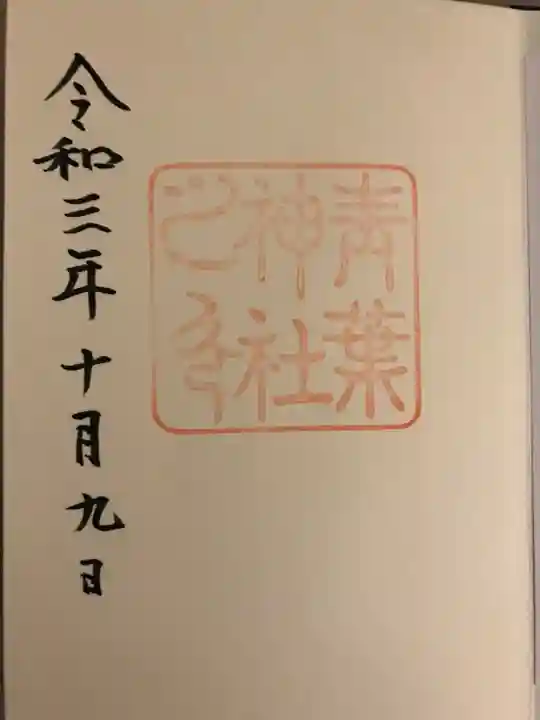 青葉
神社
之印
令和三年十月九日